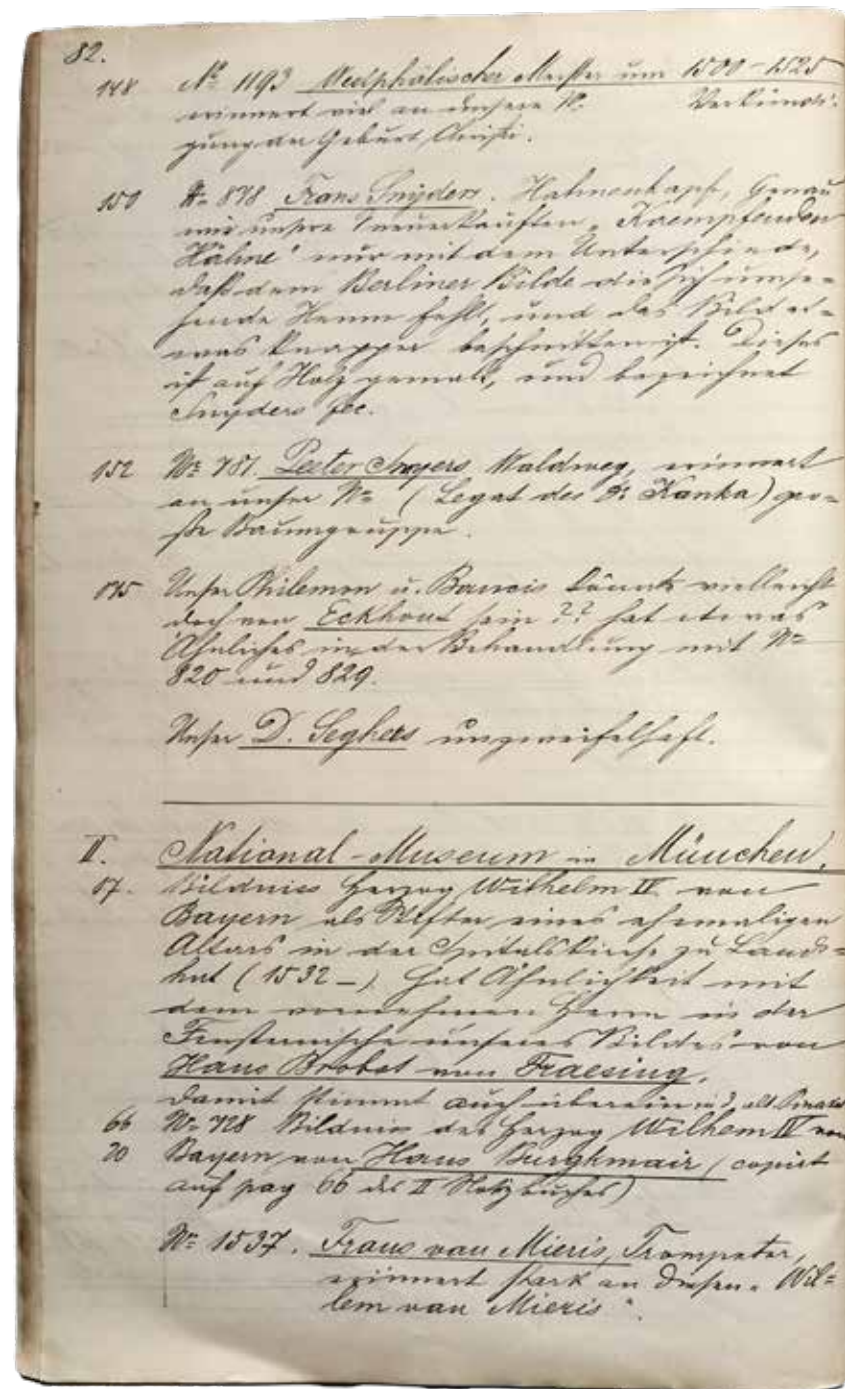 82.
148 № 1193 Westphälischer Meister um 1500–1525
erinnert viel an unsere №. Verkündi-
gung der Geburt Christi.
150 № 878 Frans Snyders. Hahnenkampf, Genau
wie unsere neuerkauften „Kaempfenden
Hähne" nur mit dem Unterschiede,
daß dem Berliner Bilde die sich umse-
hende Henne fehlt, und das Bild et-
was knapper beschnitten ist. Dieses
ist auf Holz gemalt, und bezeichnet
Snyders fec.
152 №: 781. Peeter Snayers Waldweg, erinnert
an unser №: (Legat des Dr. Kanka) gro-
ße Baumgruppe.
Unser Philemon u. Baucis könnte vielleicht
doch von Eckhout sein?? hat etwas
Ähnliches in der Behandlung mit №:
820 und 829.
Unser D. Seghers unzweifelhaft.
II. National-Museum in München.
57. Bildniss Herzog Wilhelm IV von
Bayern als Stifter eines ehemaligen
Altars in der Spitalskirche zu Lands-
hut (1532–) hat Ähnlichkeit mit
dem vornehmen Herrn in der
Fensternische unseres Bildes von
Hans Brobst von Fraesing.
Damit stimmt auch überein in d. alt. Pinako
66 №: 728 Bildniss des Herzog Wilhem IV von
20 Bayern, von Hans Burgkmair (copirt
auf pag 66 des II Notzbuches)
№: 1537. Frans van Mieris, Trompeter,
erinnert stark an diesen „Wil=
lem van Mieris".